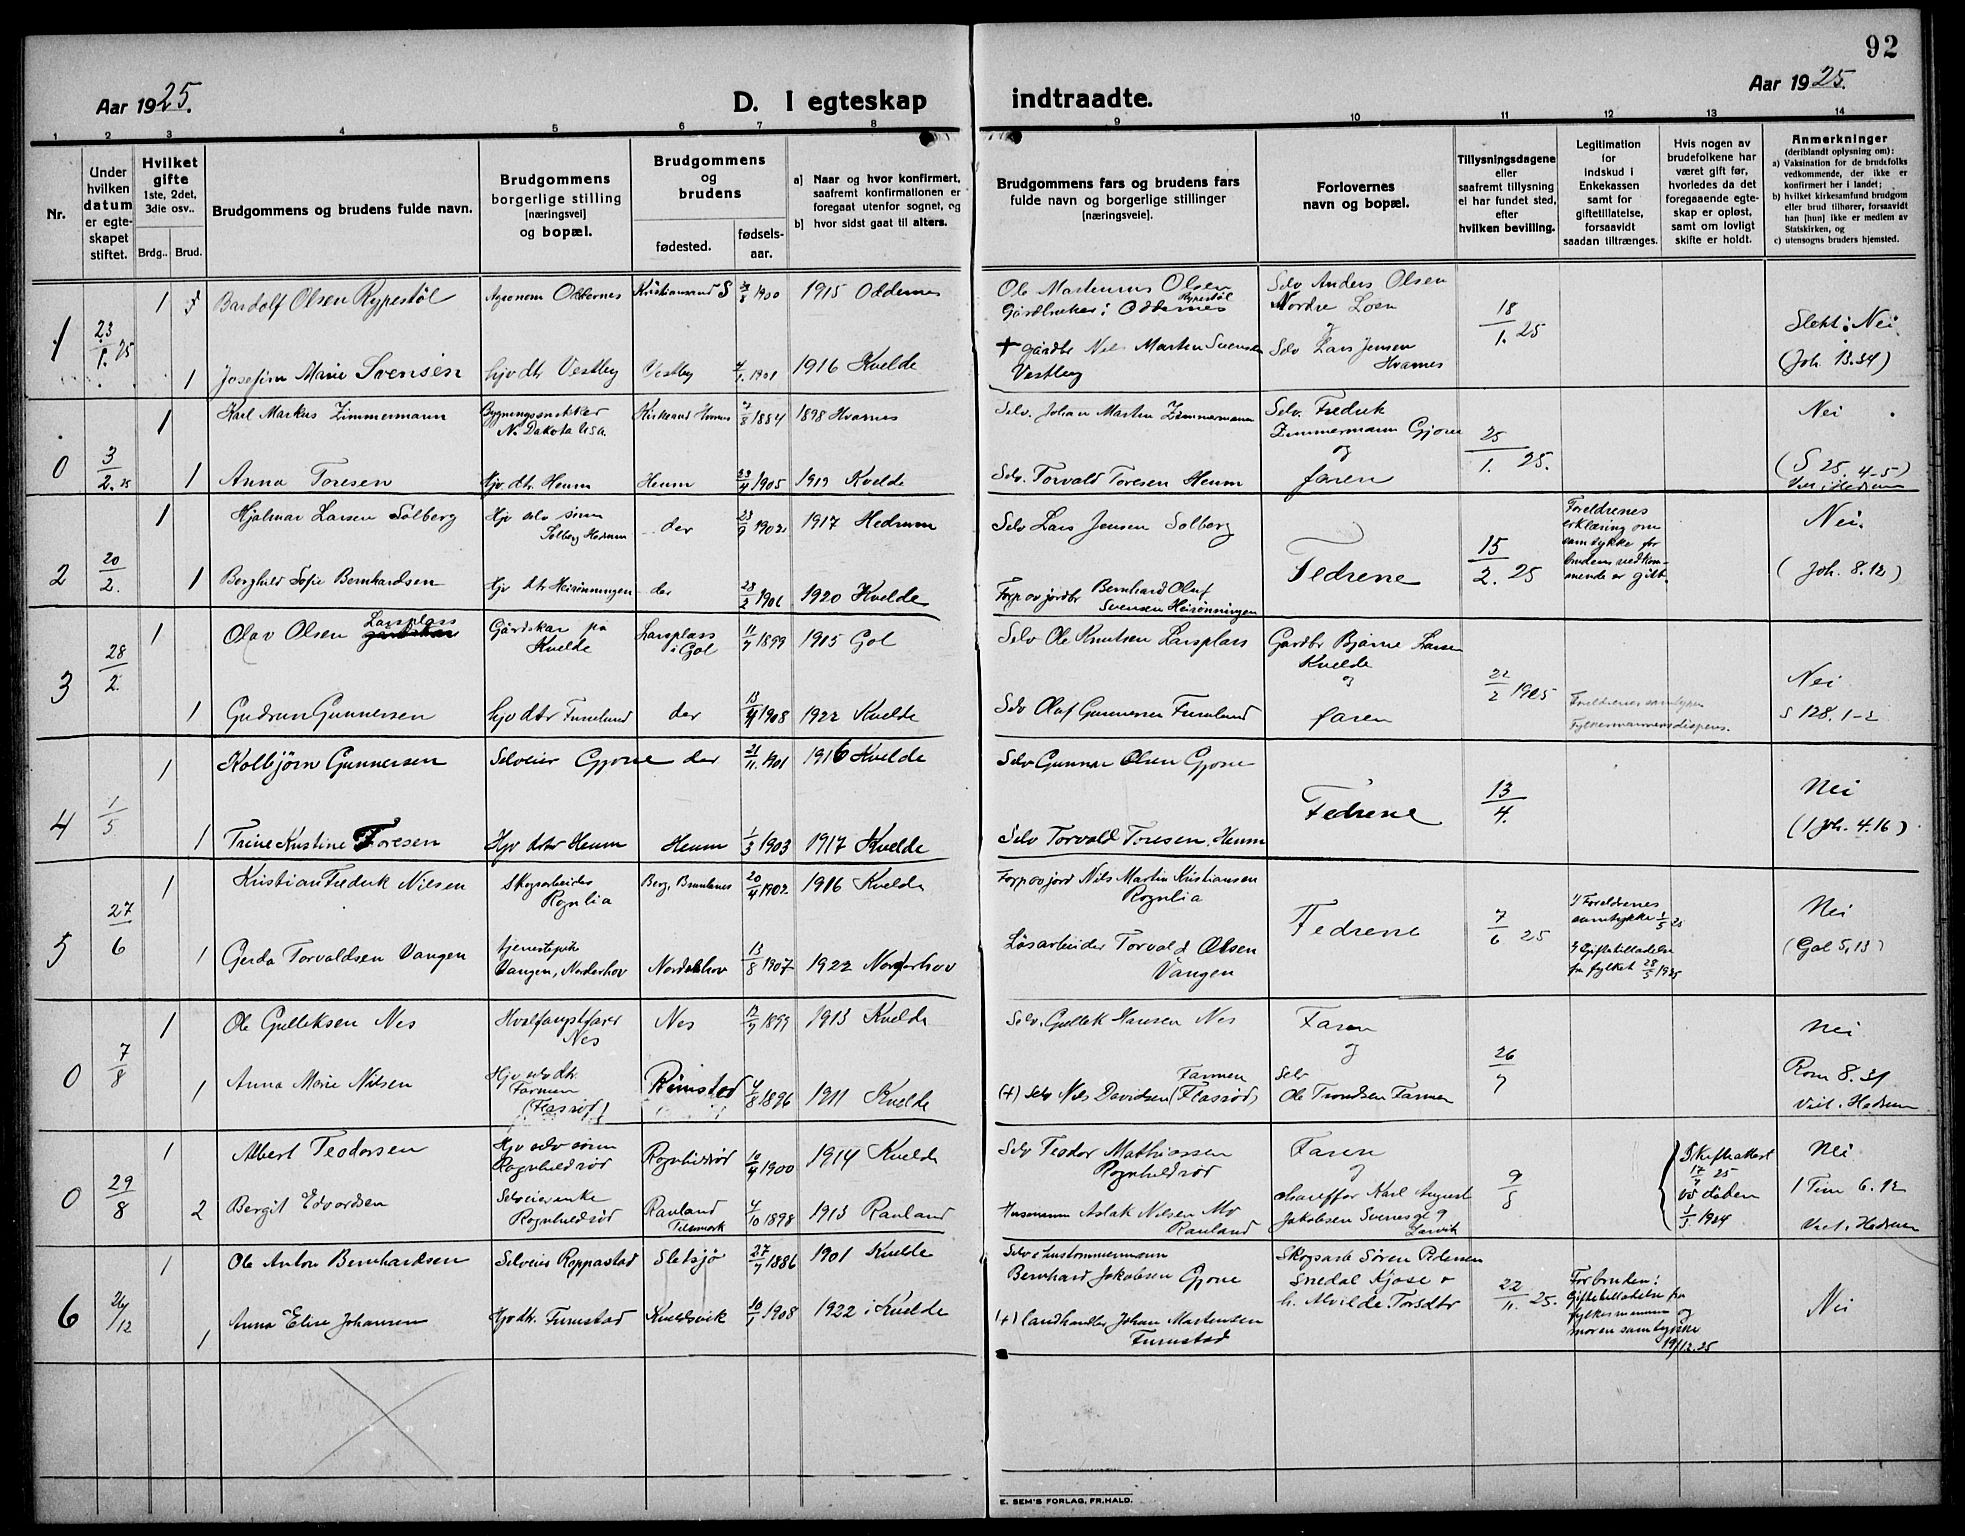 92
Aar 1925.
D. I egteskap
indtraadte.
Aar 1925.
1 2 3 4 5 6 7 8 9 10 11 12 13 14
Nr.
Under hvilken datum er egteskapet stiftet.
Hvilket gifte
1ste, 2det, 3die osv..
Brdg.. Brud.
Brudgommens og brudens fulde navn.
Brudgommens borgerlige stilling [næringsvei] og bopæl.
Brudgommens og brudens
fødested.
fødselsaar.
a) Naar og hvor konfirmert, saafremt konfirmationen er foregaat utenfor sognet, og
b) hvor sidst gaat til alters.
Brudgommens fars og brudens fars fulde navn og borgerlige stillinger [næringsveie].
Forlovernes navn og bopæl.
Tillysningsdagene eller saafremt tillysning ei har fundet sted, efter hvilken bevilling.
Legitimation for indskud i Enkekassen samt for giftetillatelse, forsaavidt saadan tiltrænges.
Hvis nogen av brudefolkene har været gift før, hvorledes da det foregaaende egteskap er opløst, samt om lovligt skifte er holdt.
Anmerkninger
(deriblandt oplysning om):
a) Vaksination for de brudefolks vedkommende, der ikke er konfirmert her i landet;
b) hvilket kirkesamfund brudgom eller brud tilhører, forsaavidt han [hun] ikke er medlem av Statskirken, og
c) utensogns bruders hjemsted.
1 23/1. 25
1 Bardolf Olsen Rypestöl Agronom Oddernes Kristiansand S /8 1900 1915 Oddernes
Ole Martinius Olsen Rypestöl Gårdbruker i Oddernes
Selv Anders Olsen Nordre Loen
og
18/1. 25
Slekt: Nei
1 Josefine Marie Svensen hjv dtr Vestby Vestby 1901 1916 Kvelde
+ gårdbr Nils Martin Svensen Vestby
Selv Lars Jensen Hvarnes
(Joh. 13.34)
0 3/2. 25
1 Karl Markus Zimmermann Bygningssnekker N. Dakota Usa. /8 1884 1898 Hvarnes
Selv. Johan Martin Zimmermann
Selv. Fredrik Zimmermann Gjone
og
25/1. 25.
Nei
1 Anna Toresen Hjv. dtr. Heum Heum 23/4 1905 1919 Kvelde
Selv. Torvald Toresen Heum
faren
(S 25. 4-5)
Viet i Hedrum
2 20/2.
1 Hjalmar Larsen Solberg Hjv selv sönn Solberg Hedrum der 23/9 1902 1917 Hedrum
Selv Lars Jensen Solberg
Fedrene
15/2. 25
Foreldrenes erklæring om samtykke for brudens vedkommende er gitt.
Nei.
1 Borghild Sofie Bernhardsen Hjv dtr Heirönningen der 28/2 1906 1920 Kvelde
Forp av jordbr Bernhard Oluf Svensen Heirönningen
(Joh. 8.12)
3 28/2.
1 Olav Olsen Larsplass Gårdskar på Kvelde Larsplass i Gol 11/7 1899 1915 Gol
Selv Ole Knutsen Larsplass
Gårdbr Bjarne Larsen Kvelde
og
22/2 1925
Nei
1 Gudrun Gunnersen hjv dtr Furulund der 13/4 1908 1922 Kvelde
Selv Olaf Gunnersen Furulund
faren
Foreldrenes samtykke
Fylkesmannens dispens.
S 128. 1-2
4 1/5
1 Kolbjörn Gunnersen Selveier Gjone der 21/11. 1901 1916 Kvelde
Selv Gunnar Olsen Gjone
Fedrene
13/4.
Nei
1 Trine Kristine Toresen Hjv dtr Heum Heum 1/3 1903 1917 Kvelde
Selv Torvald Toresen. Heum
(1 Joh. 4.16)
5 27/6
1 Kristian Fredrik Nilsen Skogsarbeider Rognlia Berg, Brunlanes 20/4 1902 1916 Kvelde
Forp av jord Nils Martin Kristiansen Rognlia
Fedrene
7/6 25
1) Foreldrenes samtykke 1/5 25
2) Giftetilladelse fra fylket 28/5 1925
Nei
1 Gerda Torvaldsen Vangen tjenestepik Vangen, Norderhov Norderhov 13/8 1907 1922 Norderhov
Lösarbeider Torvald Olsen Vangen
(Gal 5, 13)
0 7/8
1 Ole Gulliksen Nes Hvalfangstfarer Nes Nes 1899 1913 Kvelde
Selv. Gullik Hansen Nes
Faren
og
26/7
Nei
1 Anna Marie Nilsen Hjv selv dtr. Farmen (Flassröd) Rimstad 4/8 1896 1911 Kvelde
(+) Selv Nils Davidsen Farmen (Flassröd)
Selv Ole Trondsen Farmen
Rom 8. 31
Viet i Hedrum
0 29/8
1 Albert Teodorsen Hjv selv sönn Rognhildröd Rognhildröd 10/4 1900 1914 Kvelde
Selv Teodor Mathiassen Rognhildröd
Faren
og
9/8
Skifteattest 17/7 25
ved döden 1/3 1924
Nei
2 Bergit Edvardsen Selveierenke Rognhildröd Rauland Telemark 4/10 1898 1913 Rauland
Husmann Aslak Nilsen Mo Rauland
chauffør Karl August Jakobsen Svenesgt 9 Larvik
1 Tim 6. 12
Viet i Hedrum
6 26/12
1 Ole Anton Bernhardsen Selveier Roppestad Sletsjö 27/7 1886 1901 Kvelde
Selve Bernhard Jakobsen Gjone
Skogsarb Sören Pedersen Snedal Kjose o h. Alvilde Torsdtr
22/11. 25.
For bruden: Giftetilladelse fra fylkesmannen og moren samtykke 19/12. 25
Nei
1 Anna Elise Johansen Hjv dtr. Furustad Kveldsvik 10/1 1908 1922 i Kvelde
(+) landhandler Johan Martinsen Furustad
E. SEM'S FORLAG, FR.HALD.